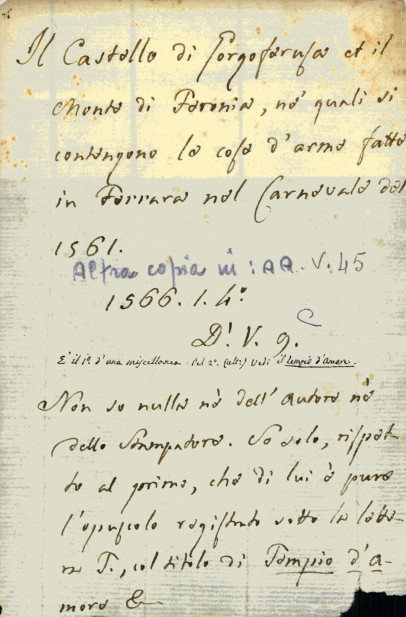 Il Castello di Gorgoferusa et il
Monte di Feronia, ne' quali si
contengono le cose d'arme fatte
in Ferrara nel Carnevale del
1561.
Altra copia in: AA. V. 45
1566. 1. 4°
D'. V. 9.
E' il 1° d'una miscellanea. Pel 2°. (ult°) vedi il tempio d'amore.
Non so nulla nè dell'Autore nè
dello Stampatore. So solo, rispet-
to al primo, che di lui è pure
l'opuscolo registrato sotto la lette-
ra T., col titolo di Tempio d'a-
more &